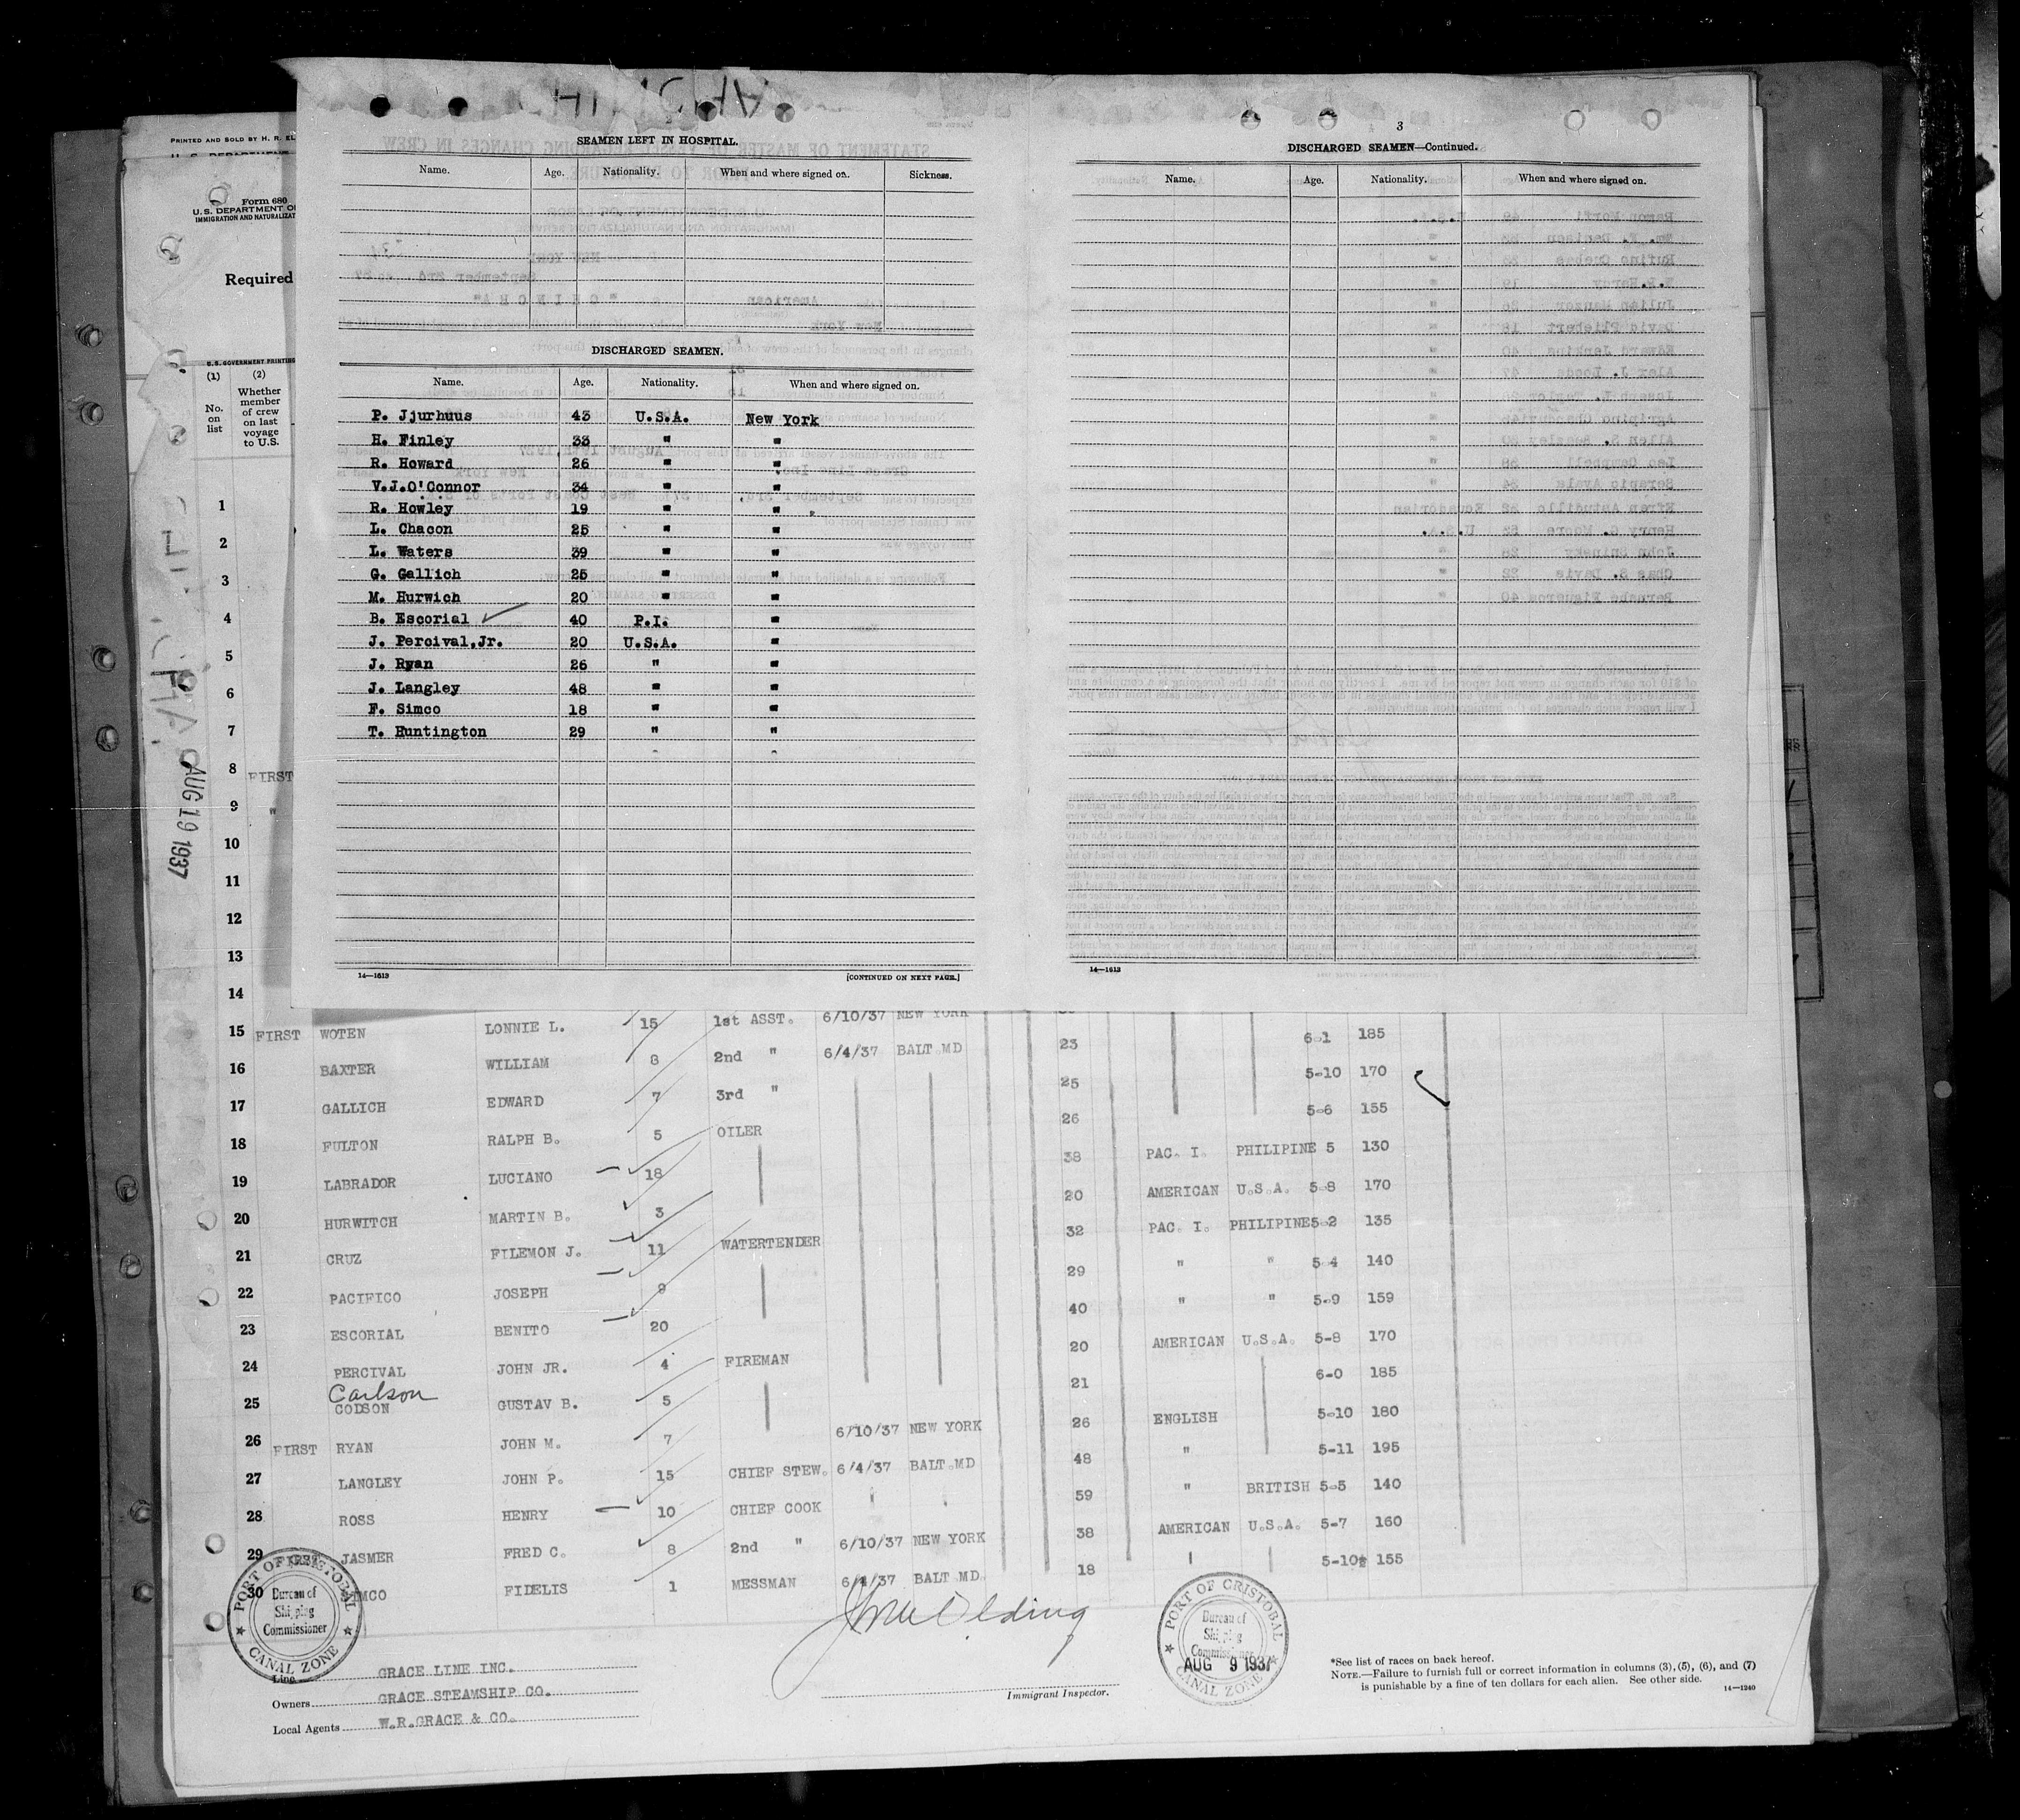 SEAMEN LEFT IN HOSPITAL.
Name. Age. Nationality. When and where signed on. Sickness.
DISCHARGED SEAMEN.
Name. Age. Nationality. When and where signed on.
P. Jjurhuus 43 U.S.A. New York
H. Finley 33 " "
R. Howard 26 " "
V.J.O'Connor 34 " "
R. Howley 19 " "
L. Chacon 25 " "
L. Waters 39 " "
G. Gallich 25 " "
M. Hurwich 20 " "
B. Escorial 40 P.I. "
J. Percival,Jr. 20 U.S.A. "
J. Ryan 26 " "
J. Langley 48 " "
F. Simco 18 " "
T. Huntington 29 " "
14—1613 [CONTINUED ON NEXT PAGE.]
3
DISCHARGED SEAMEN—Continued.
Name. Age. Nationality. When and where signed on.
14—1613
PRINTED AND SOLD BY H. R.
Form 680
U.S. DEPARTMENT
IMMIGRATION AND
Required
U.S. GOVERNMENT PRINTING
(1) (2)
No. on list
Whether member of crew on last voyage to U.S.
AUG 19 1937
1
2
3
4
5
6
7
8 FIRST
9 "
10
11
12
13
14
15 FIRST WOTEN LONNIE L. 15 1st ASST. 6/10/37 NEW YORK
16 BAXTER WILLIAM 8 2nd " 6/4/37 BALT MD 23 6-1 185
17 GALLICH EDWARD 7 3rd " 25 5-10 170
18 FULTON RALPH B. 5 OILER 26 5-6 155
19 LABRADOR LUCIANO 18 38 PAC. I. PHILIPINE 5 130
20 HURWITCH MARTIN B. 3 20 AMERICAN U.S.A. 5-8 170
21 CRUZ FILEMON J. 11 WATERTENDER 32 PAC. I. PHILIPINE 5-2 135
22 PACIFICO JOSEPH 9 29 " " 5-4 140
23 ESCORIAL BENITO 20 40 " " 5-9 159
24 PERCIVAL JOHN JR. 4 FIREMAN 20 AMERICAN U.S.A. 5-8 170
Carlson
25 CODSON GUSTAV B. 5 21 6-0 185
26 FIRST RYAN JOHN M. 7 6/10/37 NEW YORK 26 ENGLISH 5-10 180
27 LANGLEY JOHN P. 15 CHIEF STEW. 6/4/37 BALT.MD 48 " 5-11 195
28 ROSS HENRY 10 CHIEF COOK 59 " BRITISH 5-5 140
29 FIRST JASMER FRED C. 8 2nd " 6/10/37 NEW YORK 38 AMERICAN U.S.A. 5-7 160
30 SIMCO FIDELIS 1 MESSMAN 6/4/37 BALT MD. 18 5-10½ 155
PORT OF CRISTOBAL
Bureau of
Shipping
Commissioner
CANAL ZONE
PORT OF CRISTOBAL
Bureau of
Shipping
Commissioner
AUG 9 1937
CANAL ZONE
Line GRACE LINE INC.
Owners GRACE STEAMSHIP CO.
Local Agents W.R.GRACE & CO.
Immigrant Inspector.
*See list of races on back hereof.
NOTE.—Failure to furnish full or correct information in columns (3), (5), (6), and (7)
is punishable by a fine of ten dollars for each alien. See other side.
14—1240